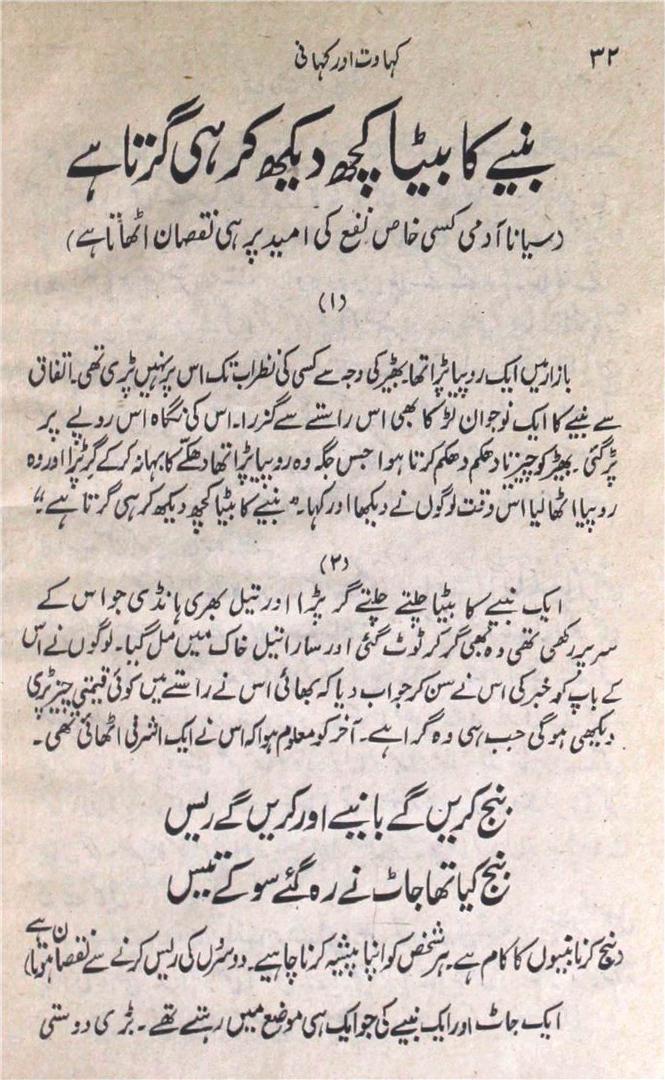 ۳۲
کہاوت اور کہانی
بنیے کا بیٹا کچھ دیکھ کر ہی گرتا ہے
(سیانا آدمی کسی خاص نفع کی امید پر ہی نقصان اٹھاتا ہے)
(۱)
بازار میں ایک روپیا پڑا تھا۔ بھیڑ کی وجہ سے کسی کی نظر اب تک اس پر نہیں پڑی تھی۔ اتفاق
سے بنیے کا ایک نوجوان لڑکا بھی اس راستے سے گزرا۔ اس کی نگاہ اس روپے پر
پڑ گئی۔ بھیڑ کو چیرتا دھکم دھکم کرتا ہوا جس جگہ وہ روپیا پڑا تھا دھکّے کا بہانہ کر کے گر پڑا اور وہ
روپیا اٹھا لیا اس وقت لوگوں نے دیکھا اور کہا۔ "بنیے کا بیٹا کچھ دیکھ کر ہی گرتا ہے"
(۲)
ایک بنیے کا بیٹا چلتے چلتے گر پڑا اور تیل بھری ہانڈی جو اس کے
سر پر رکھی تھی وہ بھی گر کر ٹوٹ گئی اور سارا تیل خاک میں مل گیا۔ لوگوں نے اس
کے باپ کو خبر کی اس نے سن کر جواب دیا کہ بھائی اس نے راستے میں کوئی قیمتی چیز پڑی
دیکھی ہوگی جب ہی وہ گرا ہے۔ آخر کو معلوم ہوا کہ اس نے ایک اشرفی اٹھائی تھی۔
بنج کریں گے بانیے اور کریں گے ریس
بنج کیا تھا جاٹ نے رہ گئے سو کے تیس
(بنج کرنا بنیوں کا کام ہے۔ ہر شخص کو اپنا پیشہ کرنا چاہیے۔ دوسروں کی ریس کرنے سے نقصان ہوتا ہے)
ایک جاٹ اور ایک بنیے کی جو ایک ہی موضع میں رہتے تھے۔ بڑی دوستی